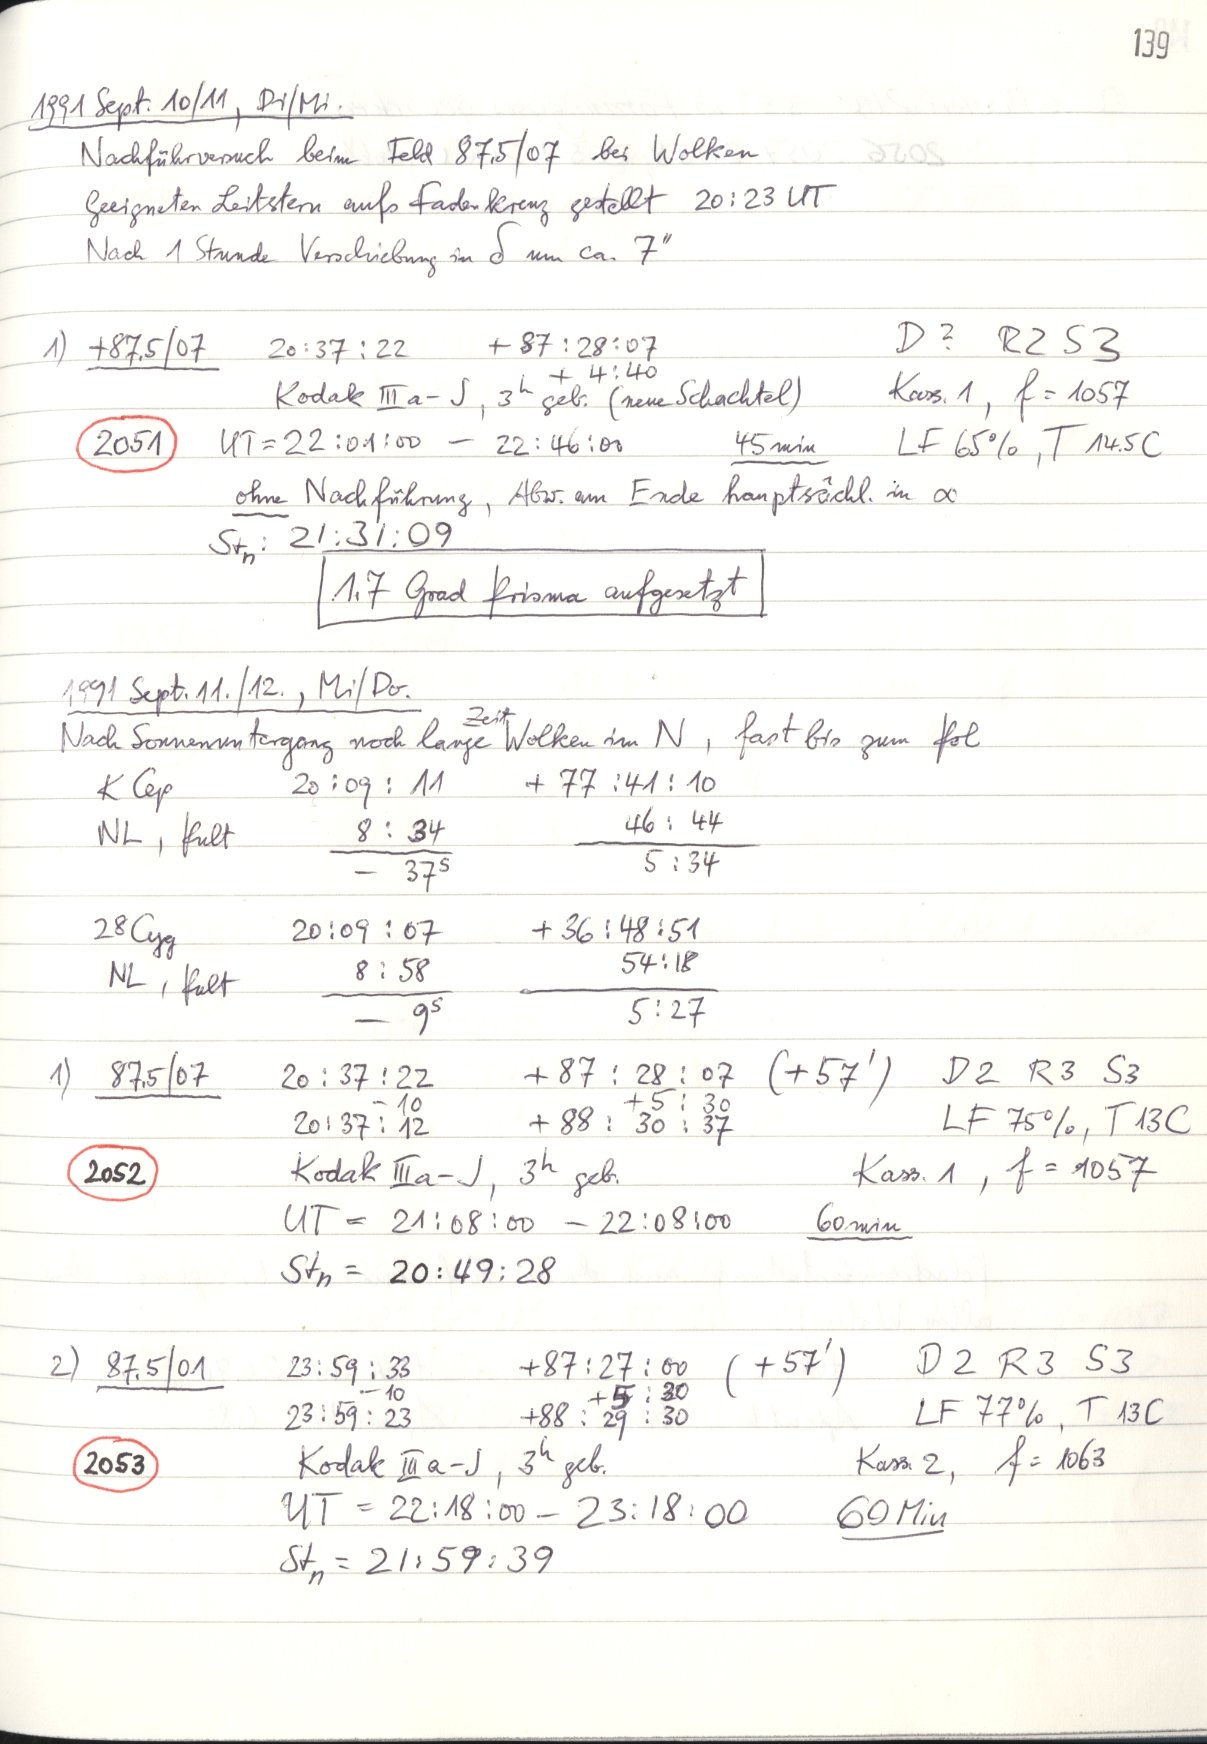 139
1991 Sept. 10/11, Di/Mi.
Nachführversuch beim Feld 87.5/07 bei Wolken
Geeigneten Leitstern aufs Fadenkreuz gestellt 20:23 UT
Nach 1 Stunde Verschiebung in δ um ca. 7"
1) +87.5/07 20:37:22 +87:28:07 D? R2 S3
+ 4:40
Kodak IIIa-J, 3h geb. (neue Schachtel) Kass. 1, f = 1057
2051 UT = 22:01:00 - 22:46:00 45 min LF 65%, T 14.5C
ohne Nachführung, Abw. am Ende hauptsächl. in α
Stn: 21:31:09
1.7 Grad Prisma aufgesetzt
1991 Sept. 11./12., Mi/Do.
Nach Sonnenuntergang noch lange Zeit Wolken im N, fast bis zum Pol
κ Cep 20:09:11 +77:41:10
NL, Pult 8:34 46:44
- 37s 5:34
28 Cyg 20:09:07 +36:48:51
NL, Pult 8:58 54:18
- 9s 5:27
1) 87.5/07 20:37:22 +87:28:07 (+57') D2 R3 S3
-10 +5:30
20:37:12 +88:30:37 LF 75%, T 13C
2052 Kodak IIIa-J, 3h geb. Kass. 1, f = 1057
UT = 21:08:00 - 22:08:00 60 min
Stn = 20:49:28
2) 87.5/01 23:59:33 +87:27:00 (+57') D2 R3 S3
-10 +5:30
23:59:23 +88:29:30 LF 77%, T 13C
2053 Kodak IIIa-J, 3h geb. Kass. 2, f = 1063
UT = 22:18:00 - 23:18:00 60 Min
Stn = 21:59:39